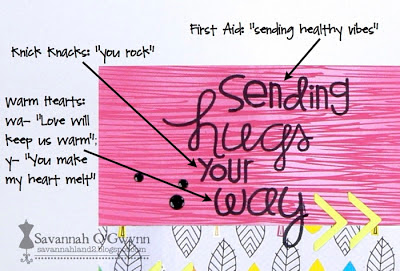 First Aid: "sending healthy vibes"
Knick Knacks: "you rock"
Warm Hearts:
wa- "Love will
keep us warm";
y- "You make
my heart melt"
sending
hugs
your
way
Savannah O'Gwynn
savannahland2.blogspot.com